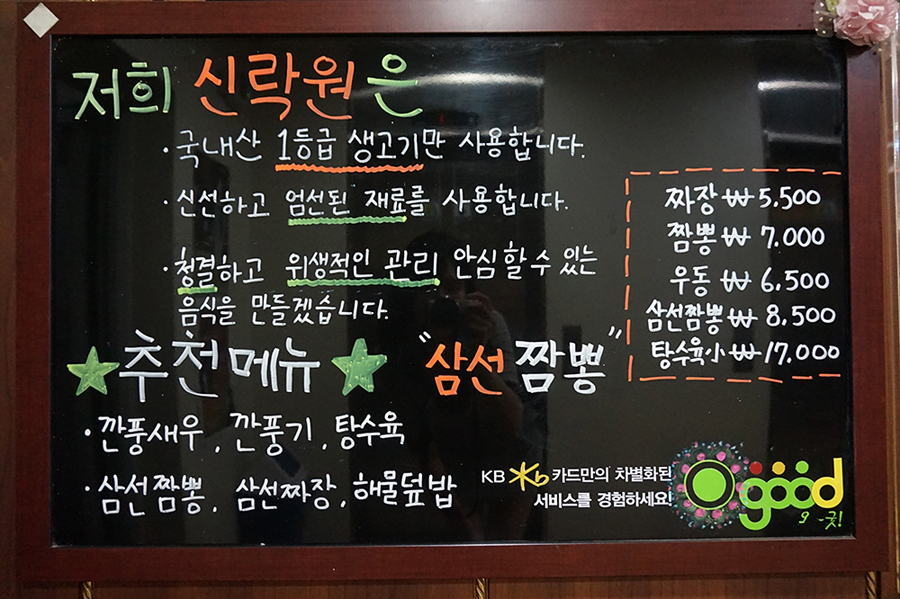 저희 신락원은
· 국내산 1등급 생고기만 사용합니다.
· 신선하고 엄선된 재료를 사용합니다.
· 청결하고 위생적인 관리 안심할 수 있는
음식을 만들겠습니다.
짜장 ₩ 5,500
짬뽕 ₩ 7.000
우동 ₩ 6,500
삼선짬뽕 ₩ 8,500
탕수육小 ₩ 17.000
★추천메뉴★
"삼선짬뽕"
· 깐풍새우, 깐풍기, 탕수육
· 삼선짬뽕, 삼선짜장, 해물덮밥
KB Kb 카드만의 차별화된
서비스를 경험하세요!
O good
오-굿!